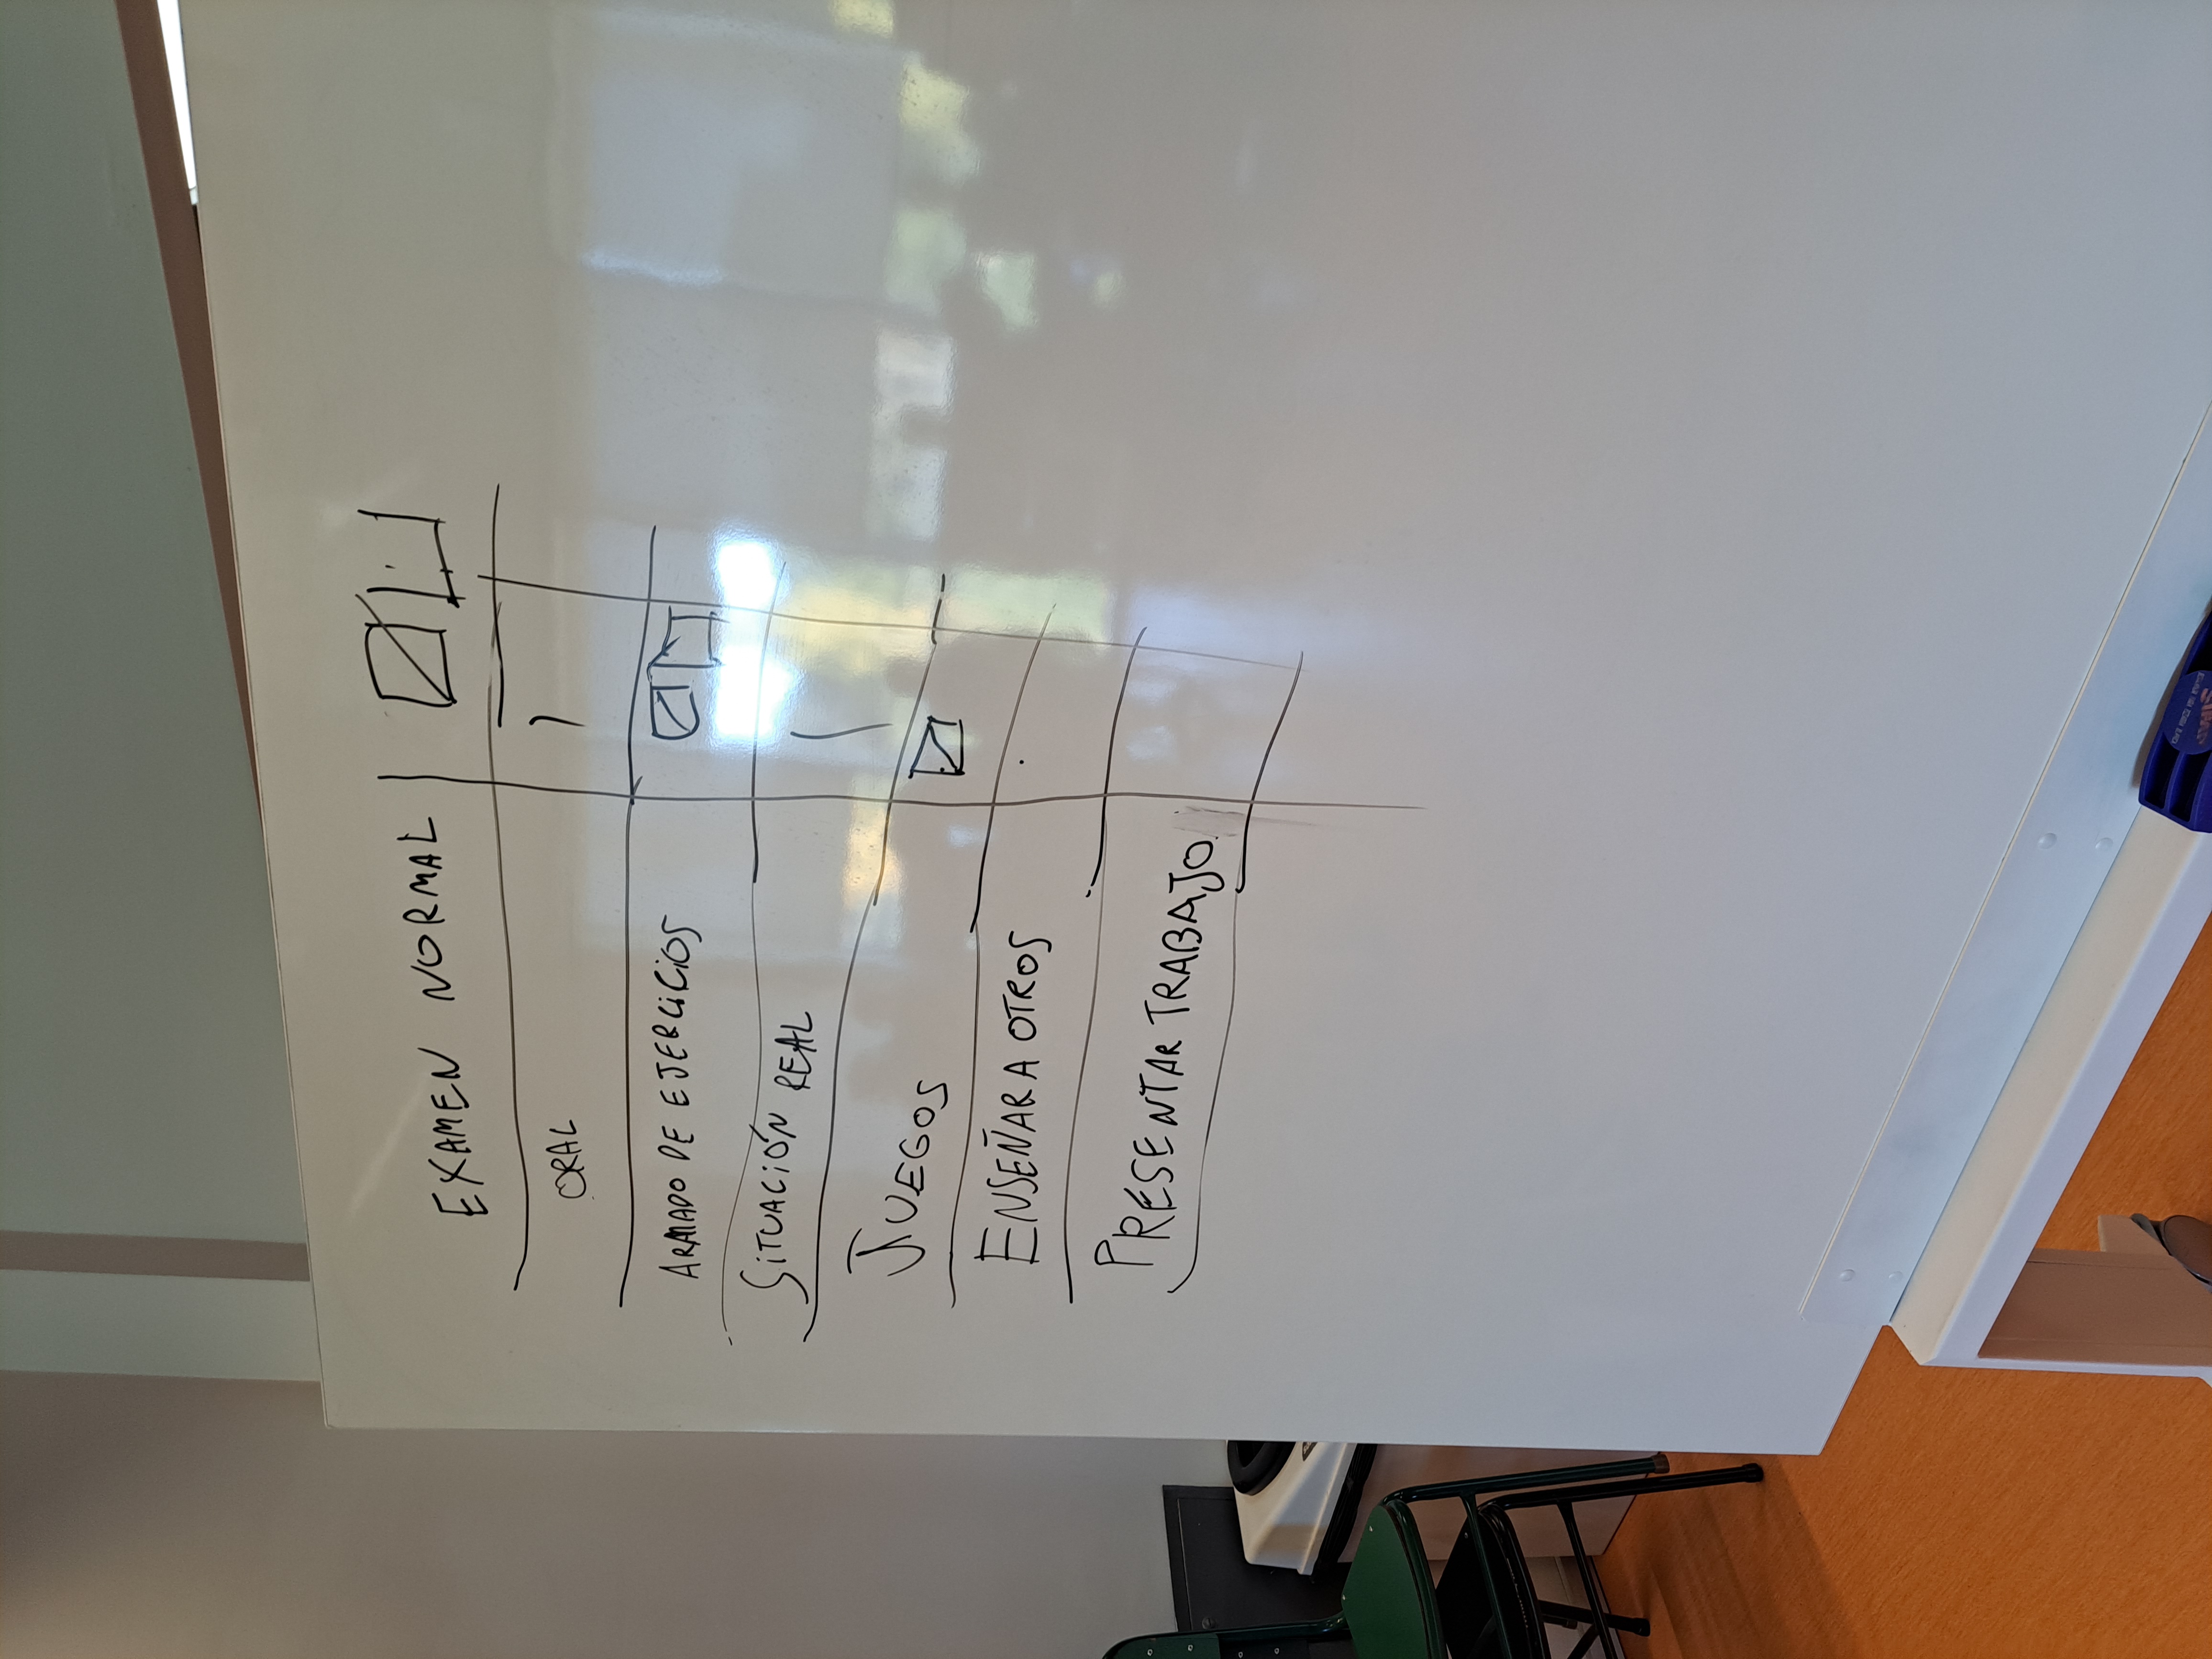 EXAMEN NORMAL
ORAL
ARMADO DE EJERCICIOS
SITUACIÓN REAL
JUEGOS
ENSEÑAR A OTROS
PRESENTAR TRABAJO